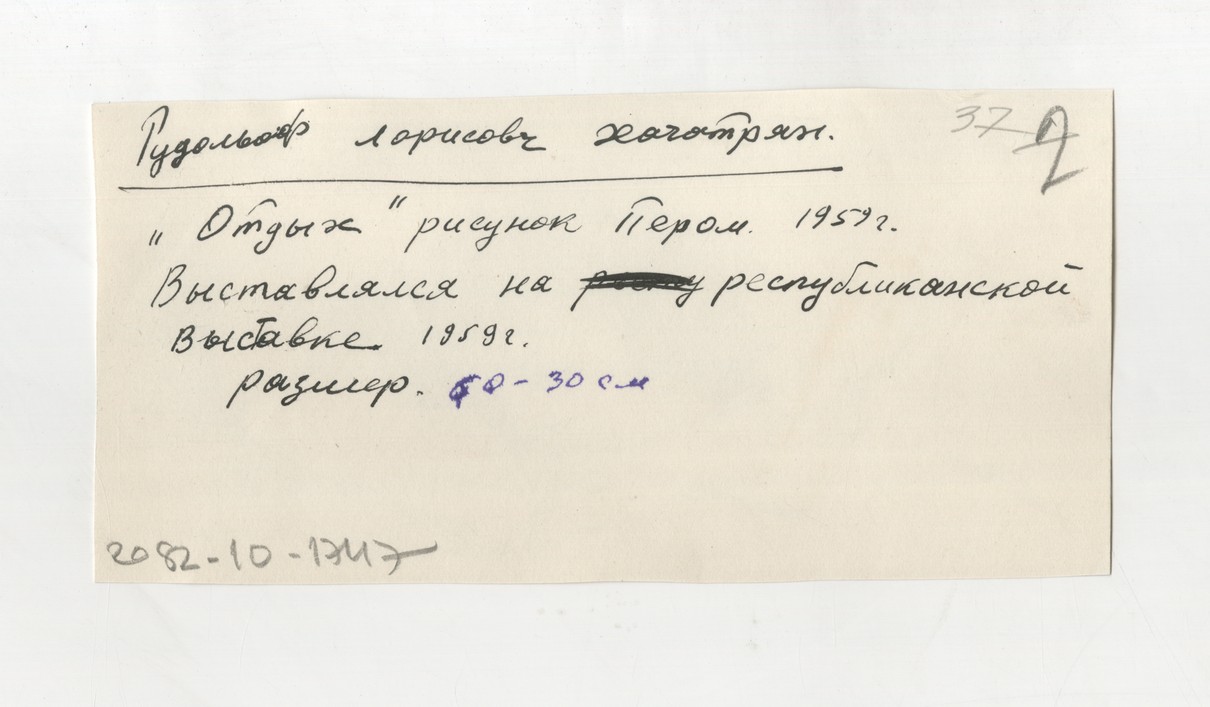 Рудольф Лорисовч Хачатрян.
37
„Отдых" рисунок Пером. 1959г.
Выставлялся на республиканской
выставке. 1959г.
размер. 60-30 см
2082-10-1747